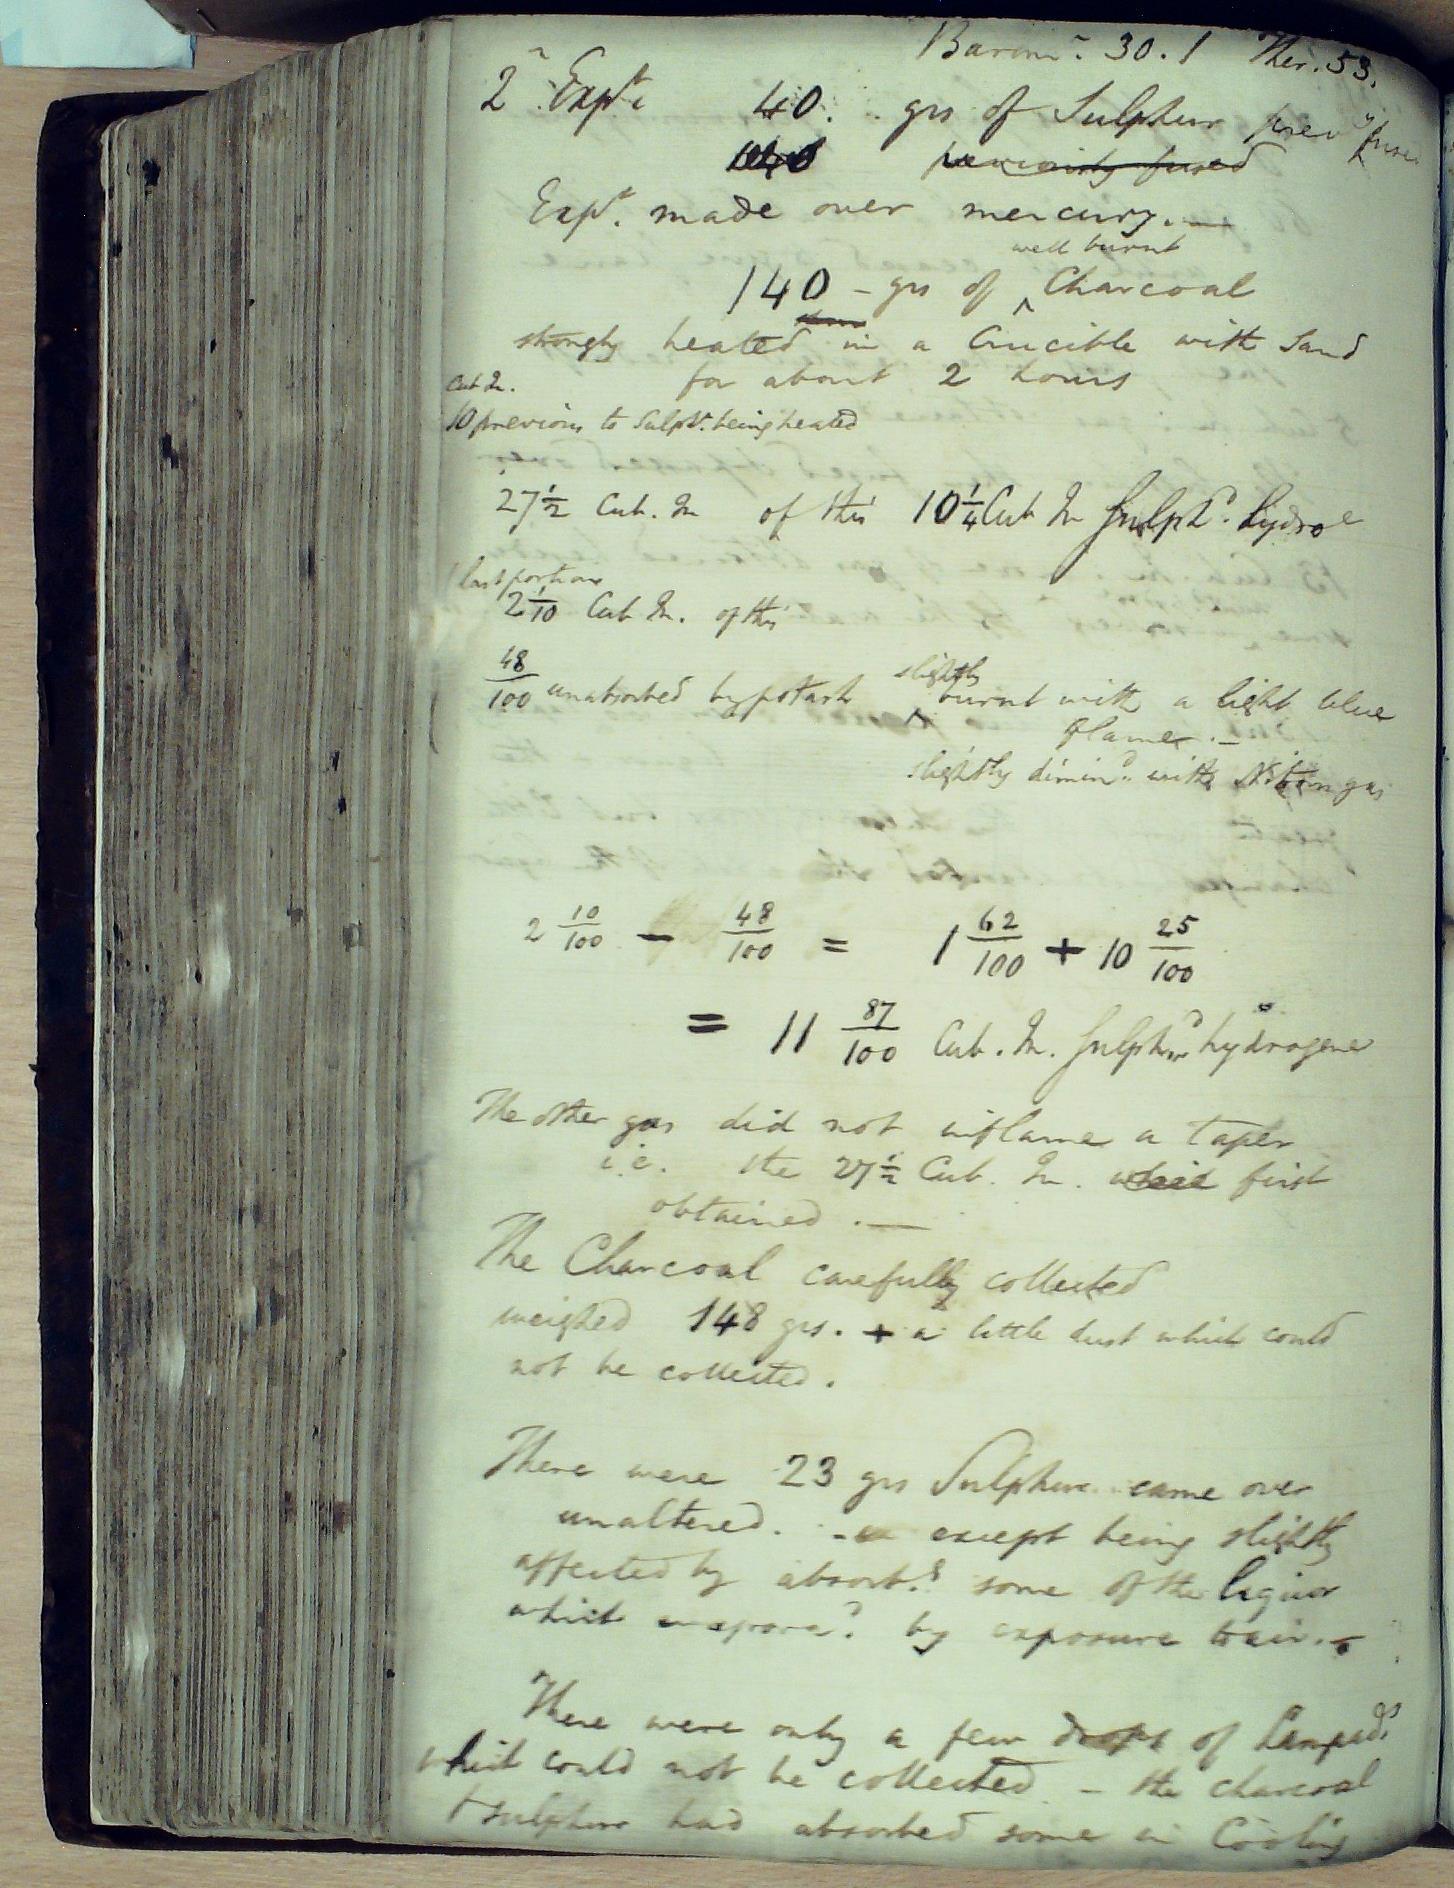 Barom. 30.1 Ther. 53.
2 Expt 40. grs of Sulphur prev fused
previously fused
Expt. made over mercury. —
well burnt
140 - grs of ^ Charcoal
strongly heated in a Crucible with Sand
for about 2 hours
Cub In.
10 previous to Sulphr. being heated
27 1/2 Cub. In of this 10 1/4 Cub In Sulphd. hydroe
last portions
2 1/10 Cub In. of this
slightly
48/100 unabsorbed by potash ^ burnt with a light blue
flame. —
slightly dimind. with Nitrous gas
2 10/100 — 48/100 = 1 62/100 + 10 25/100
= 11 87/100 Cub. In. Sulphurd hydrogene
The other gas did not inflame a taper
i.e. the 27 1/2 Cub. In. first
obtained. —
The Charcoal carefully collected
weighed 148 grs. + a little dust which could
not be collected.
There were 23 grs Sulphur came over
unaltered. - except being slightly
affected by absorbg some of the liquor
which evapord. by exposure to air. -
There were only a few drops of Lampads
which could not be collected - the charcoal
+ sulphur had absorbed some in Cooling